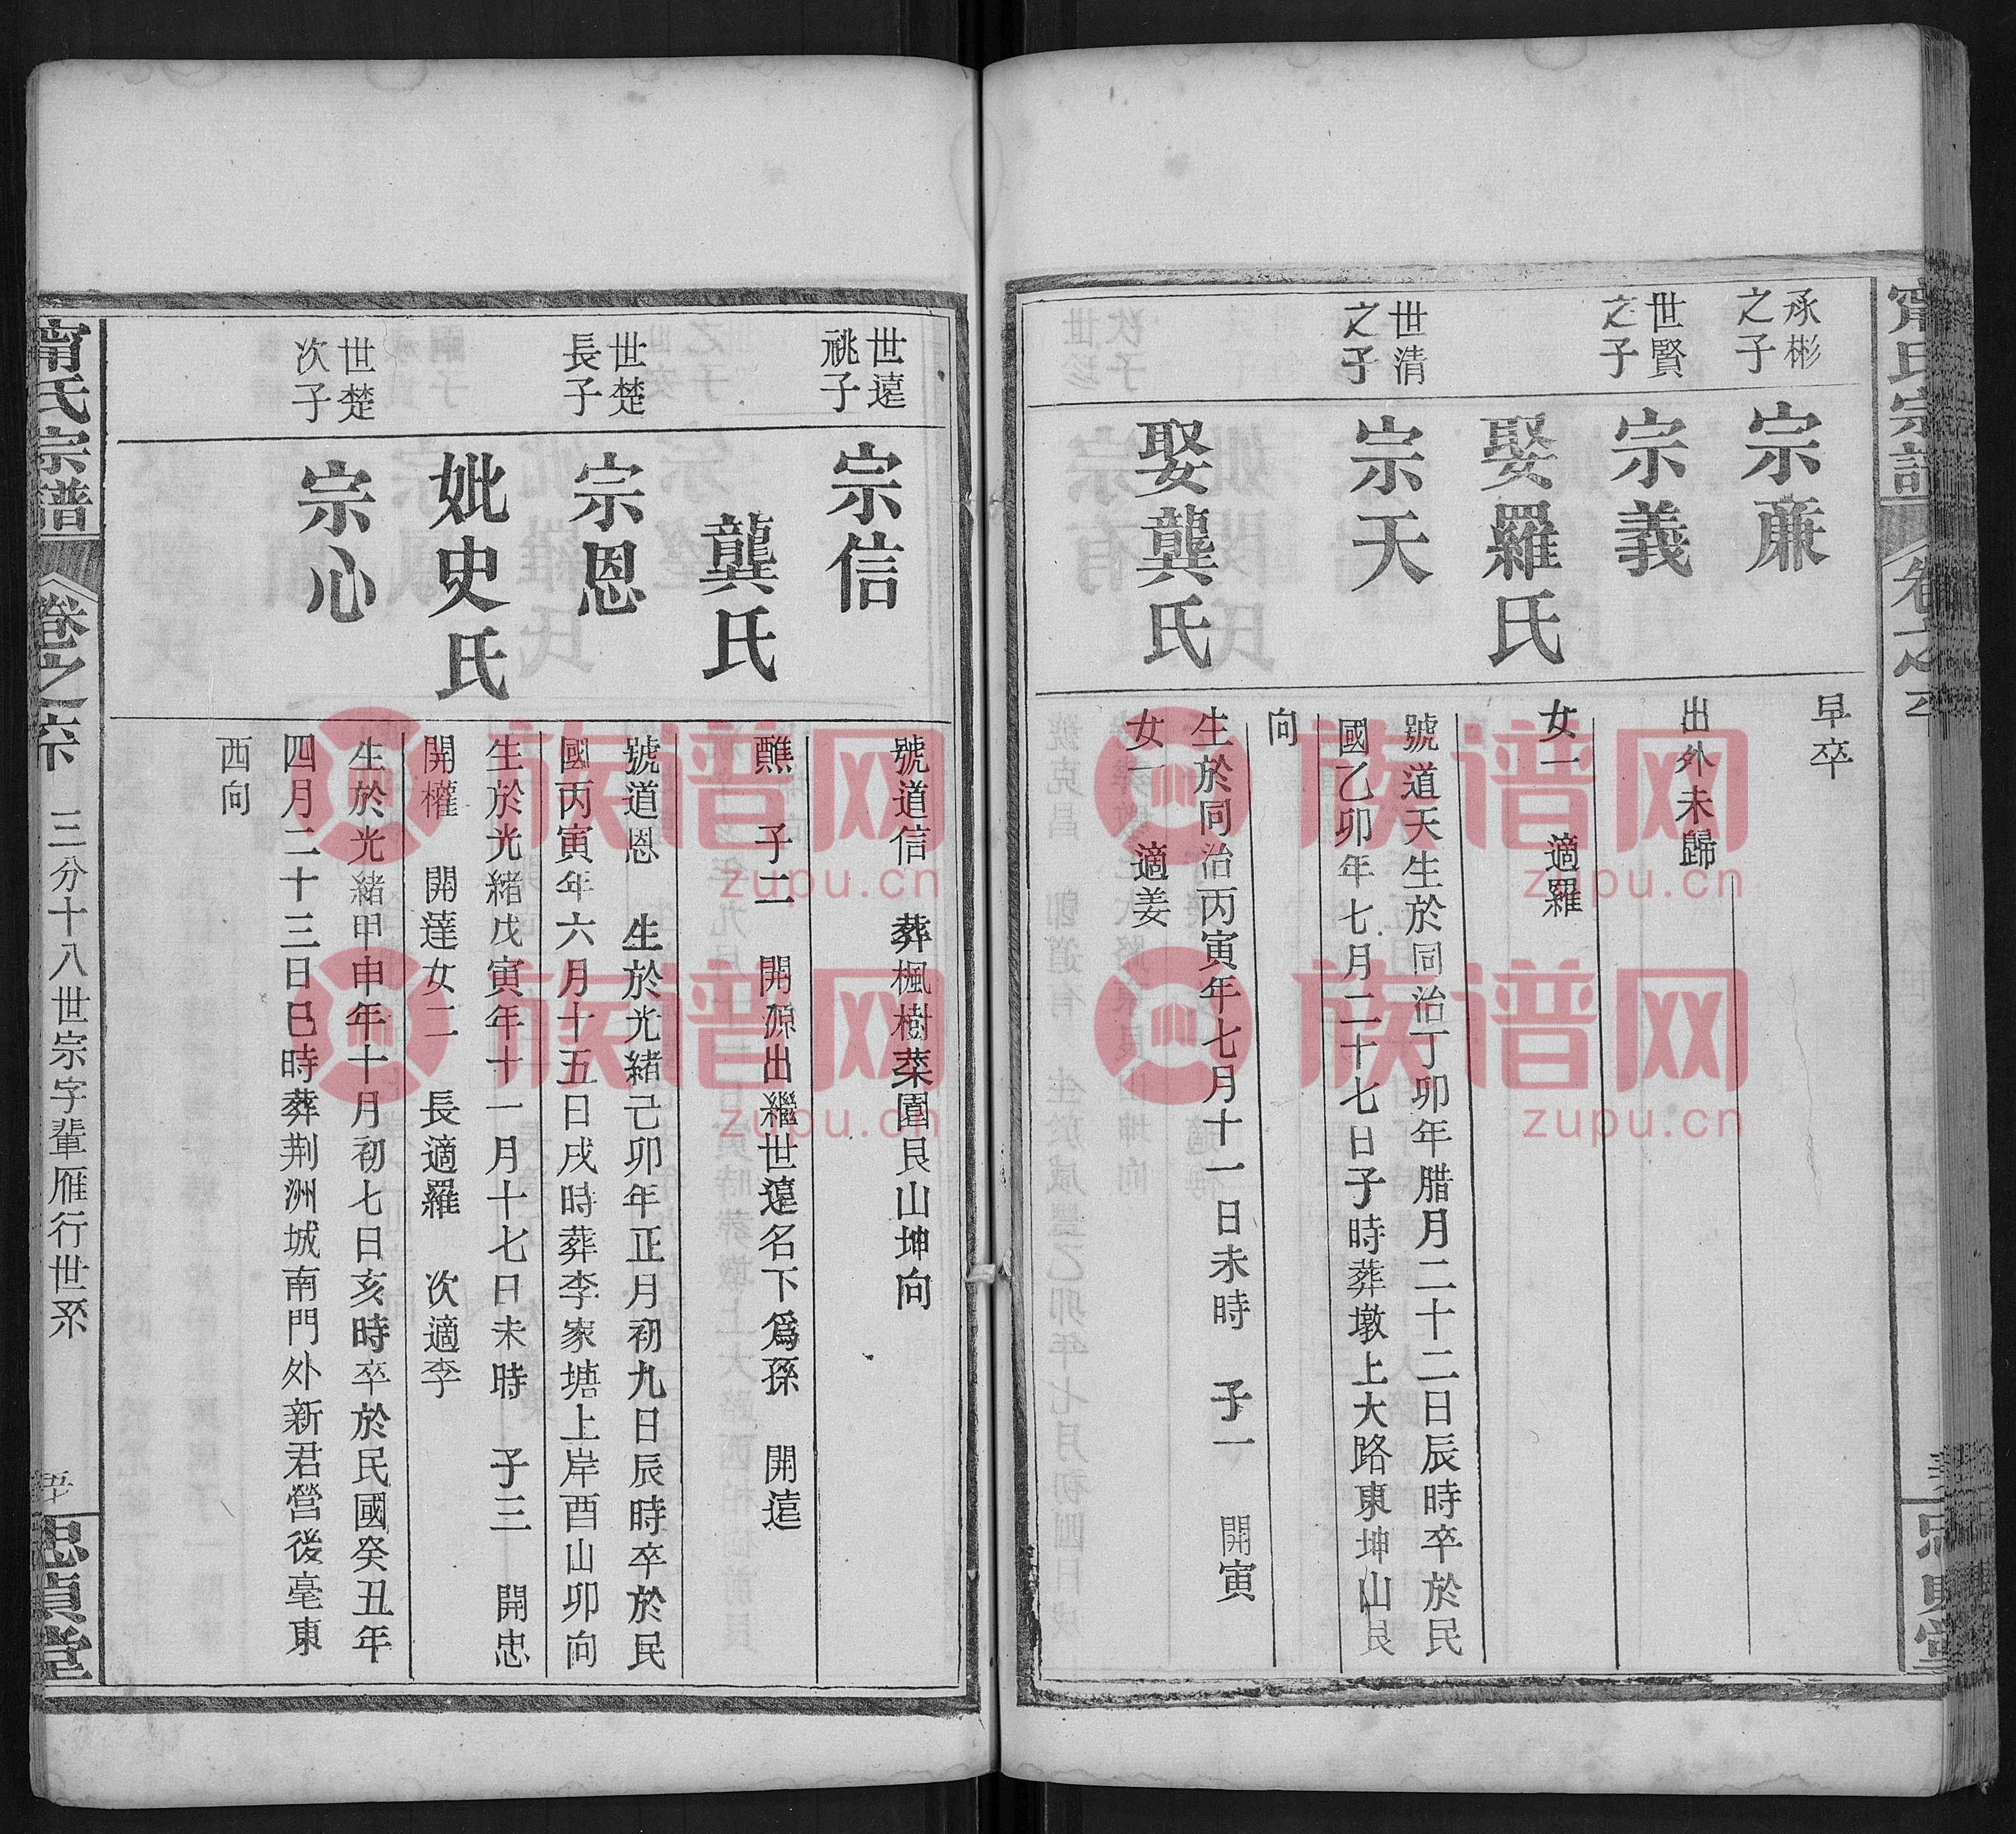 甯氏宗譜
承彬
之子
宗廉
早卒
世賢
之子
宗義
出外未歸
娶羅氏
女一 適羅
世清
之子
宗天
號道天生於同治丁卯年腊月二十二日辰時卒於民
國乙卯年七月二十七日子時葬墩上大路東坤山艮
向
娶龔氏
生於同治丙寅年七月十一日未時 子一 開寅
女一 適姜
世遠
祧子
宗信
號道信 葬楓樹菜園艮山坤向
龔氏
醮 子二 開源出繼世遠名下爲孫 開遠
世楚
長子
宗恩
號道恩 生於光緒己卯年正月初九日辰時卒於民
國丙寅年六月十五日戌時葬李家塘上岸酉山卯向
妣史氏
生於光緒戊寅年十一月十七日未時 子三 開忠
開權 開達女二 長適羅 次適李
世楚
次子
宗心
生於光緒甲申年十月初七日亥時卒於民國癸丑年
四月二十三日巳時葬荆洲城南門外新君營後毫東
西向
甯氏宗譜
卷之六 三分十八世宗字輩雁行世系
忠貞堂
族谱网
zupu.cn
族谱网
zupu.cn
族谱网
zupu.cn
族谱网
zupu.cn